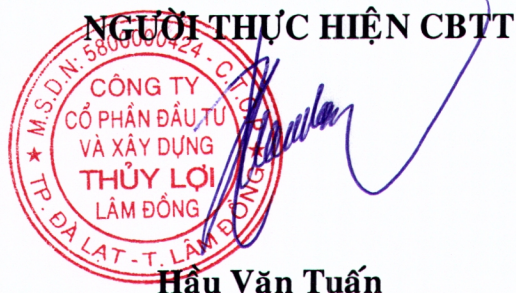 NGƯỜI THỰC HIỆN CBTT
M.S.D.N: 5800000424 - C.T.C.P
CÔNG TY
CỔ PHẦN ĐẦU TƯ
VÀ XÂY DỰNG
THỦY LỢI
LÂM ĐỒNG
TP. ĐÀ LẠT - T. LÂM ĐỒNG
Hầu Văn Tuấn